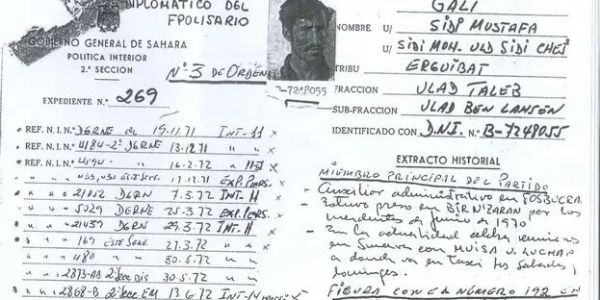 DIPLOMATICO DEL
FPOLISARIO
GOBIERNO GENERAL DE SAHARA
POLITICA INTERIOR
2.ª SECCION
Nº 3 DE ORDEN
EXPEDIENTE N.º 269
B-7248055
GALI
NOMBRE U/ SIDI MUSTAFA
U/ SIDI MOH. ULD SIDI CHEI
TRIBU ERGUIBAT
FRACCION ULAD TALEB
SUB-FRACCION ULAD BEN LANSEN
IDENTIFICADO CON D.N.I. Nº B-7248055
REF. N.I.N.º DGRNE de 19.11.71 INT-11 x
REF. N.I.N.º 4184-2º DGRNE 13.12.71 " " x
REF. N.I.N.º 16.2.72 " x
17.12.71 EXP. x
" " " 21052 DGRN 7.3.72 INT. H x
" " " 5029 DGRNE 25.3.72 x
" " " 21439 DGRN 29.3.72 INT. H x
" " " 169 ESTE SERV. 27.3.72 " " x
" " " 480 30.5.72 " " x
" " 2873-BB 30.5.72 x
" " 2868-B 2ª SEC EM 13.6.72 INT-14 x
EXTRACTO HISTORIAL
MIEMBRO PRINCIPAL DEL PARTIDO
- Auxiliar administrativo en FOSBUCRA
- Estuvo preso en BIR NZARAN por los
incidentes de junio de 1970
- En la actualidad celebra reuniones
en Smara con MUISA U. LUCHAR
a donde va en taxi los sabados y
domingos.
FIGURA CON EL NUMERO 192 EN